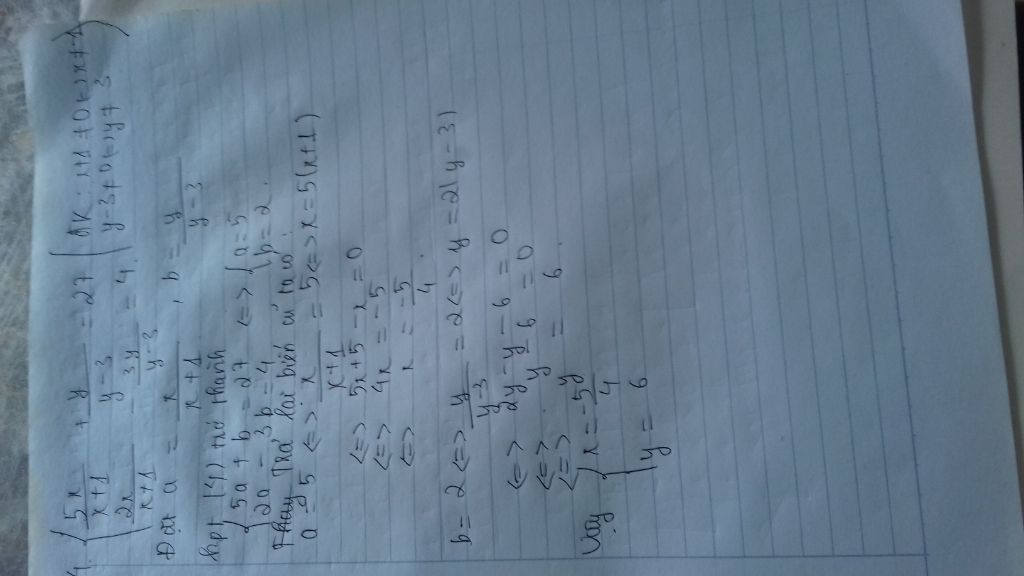 4. { 5x/(x+1) + y/(y-3) = 27 ( ĐK: x+1 ≠ 0 <=> x ≠ -1 )
2x/(x+1) - 3y/(y-3) = 4. ( y-3 ≠ 0 <=> y ≠ 3
Đặt a = x/(x+1), b = y/(y-3)
hpt (4) trở thành
{ 5a + b = 27 <=> { a = 5
2a - 3b = 4 { b = 2.
Thay Trả lại biến cũ ta có:
a = 5 <=> x/(x+1) = 5 <=> x = 5(x+1)
<=> 5x + 5 - x = 0
<=> 4x = -5
<=> x = -5/4.
b = 2 <=> y/(y-3) = 2 <=> y = 2(y-3)
<=> 2y - y - 6 = 0
<=> y - 6 = 0
<=> y = 6.
Vậy { x = -5/4
y = 6